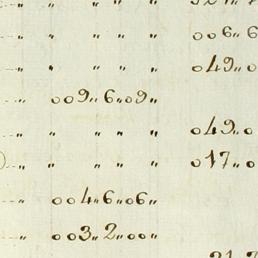 " " " " "
" " " " " 006"6
" " " " " 049"0
" 009"6"09"
" " " " " 049"0
" " " " " 017"0
" 004"6"06"
" 003"2"00"